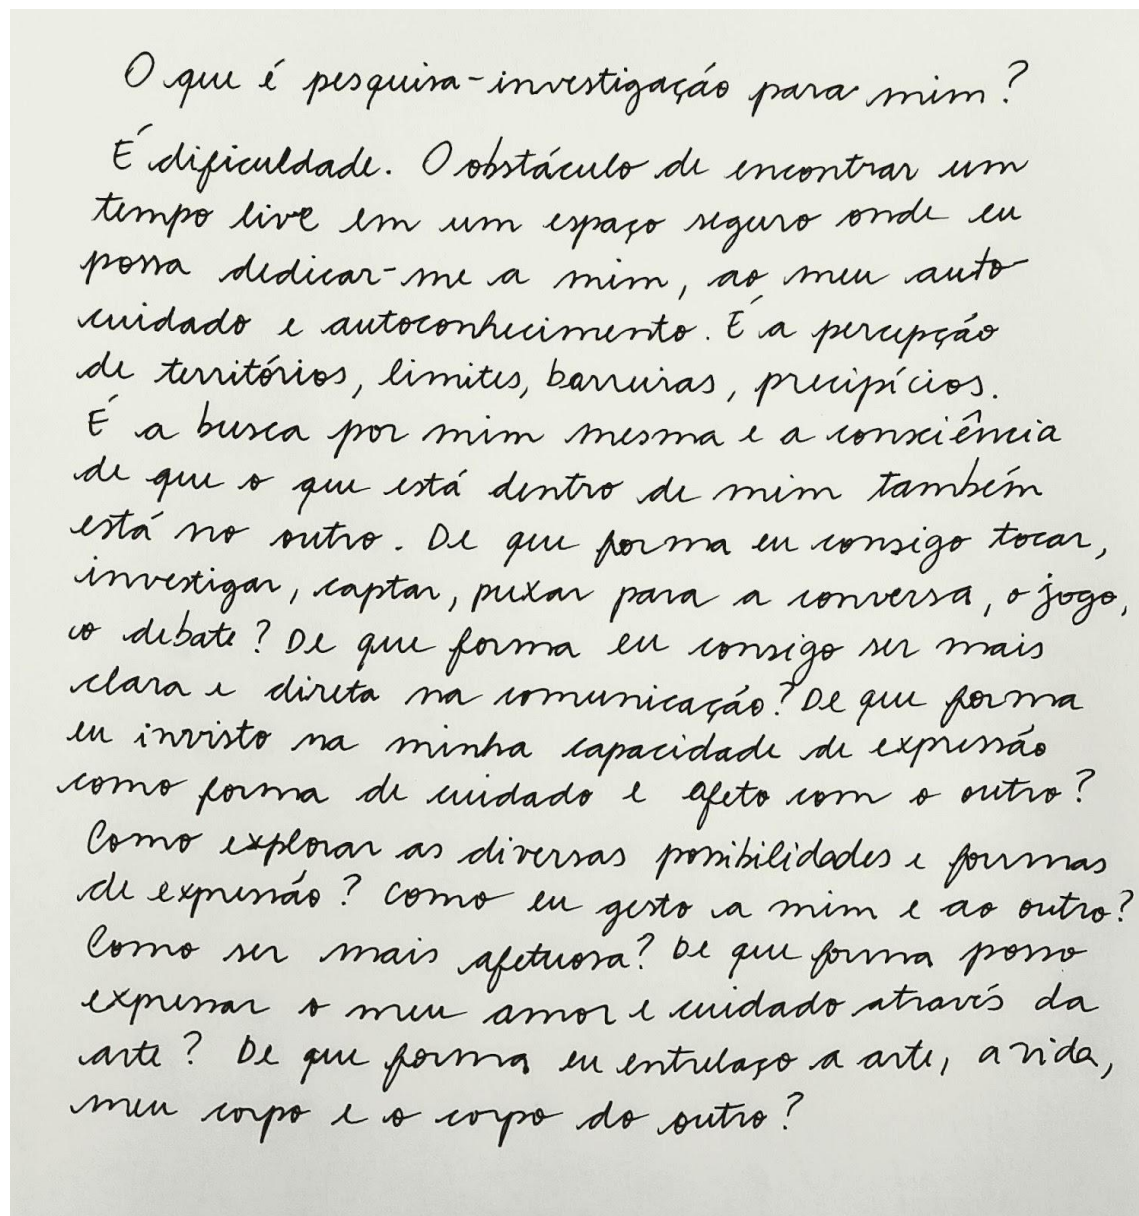 O que é pesquisa-investigação para mim?
É dificuldade. O obstáculo de encontrar um
tempo live em um espaço seguro onde eu
possa dedicar-me a mim, ao meu auto-
cuidado e autoconhecimento. É a percepção
de territórios, limites, barreiras, precipícios.
É a busca por mim mesma e a consciência
de que o que está dentro de mim também
está no outro. De que forma eu consigo tocar,
investigar, captar, puxar para a conversa, o jogo,
o debate? De que forma eu consigo ser mais
clara e direta na comunicação? De que forma
eu invisto na minha capacidade de expressão
como forma de cuidado e afeto com o outro?
Como explorar as diversas possibilidades e formas
de expressão? Como eu gesto a mim e ao outro?
Como ser mais afetuosa? De que forma posso
expressar o meu amor e cuidado através da
arte? De que forma eu entrelaço a arte, a vida,
meu corpo e o corpo do outro?